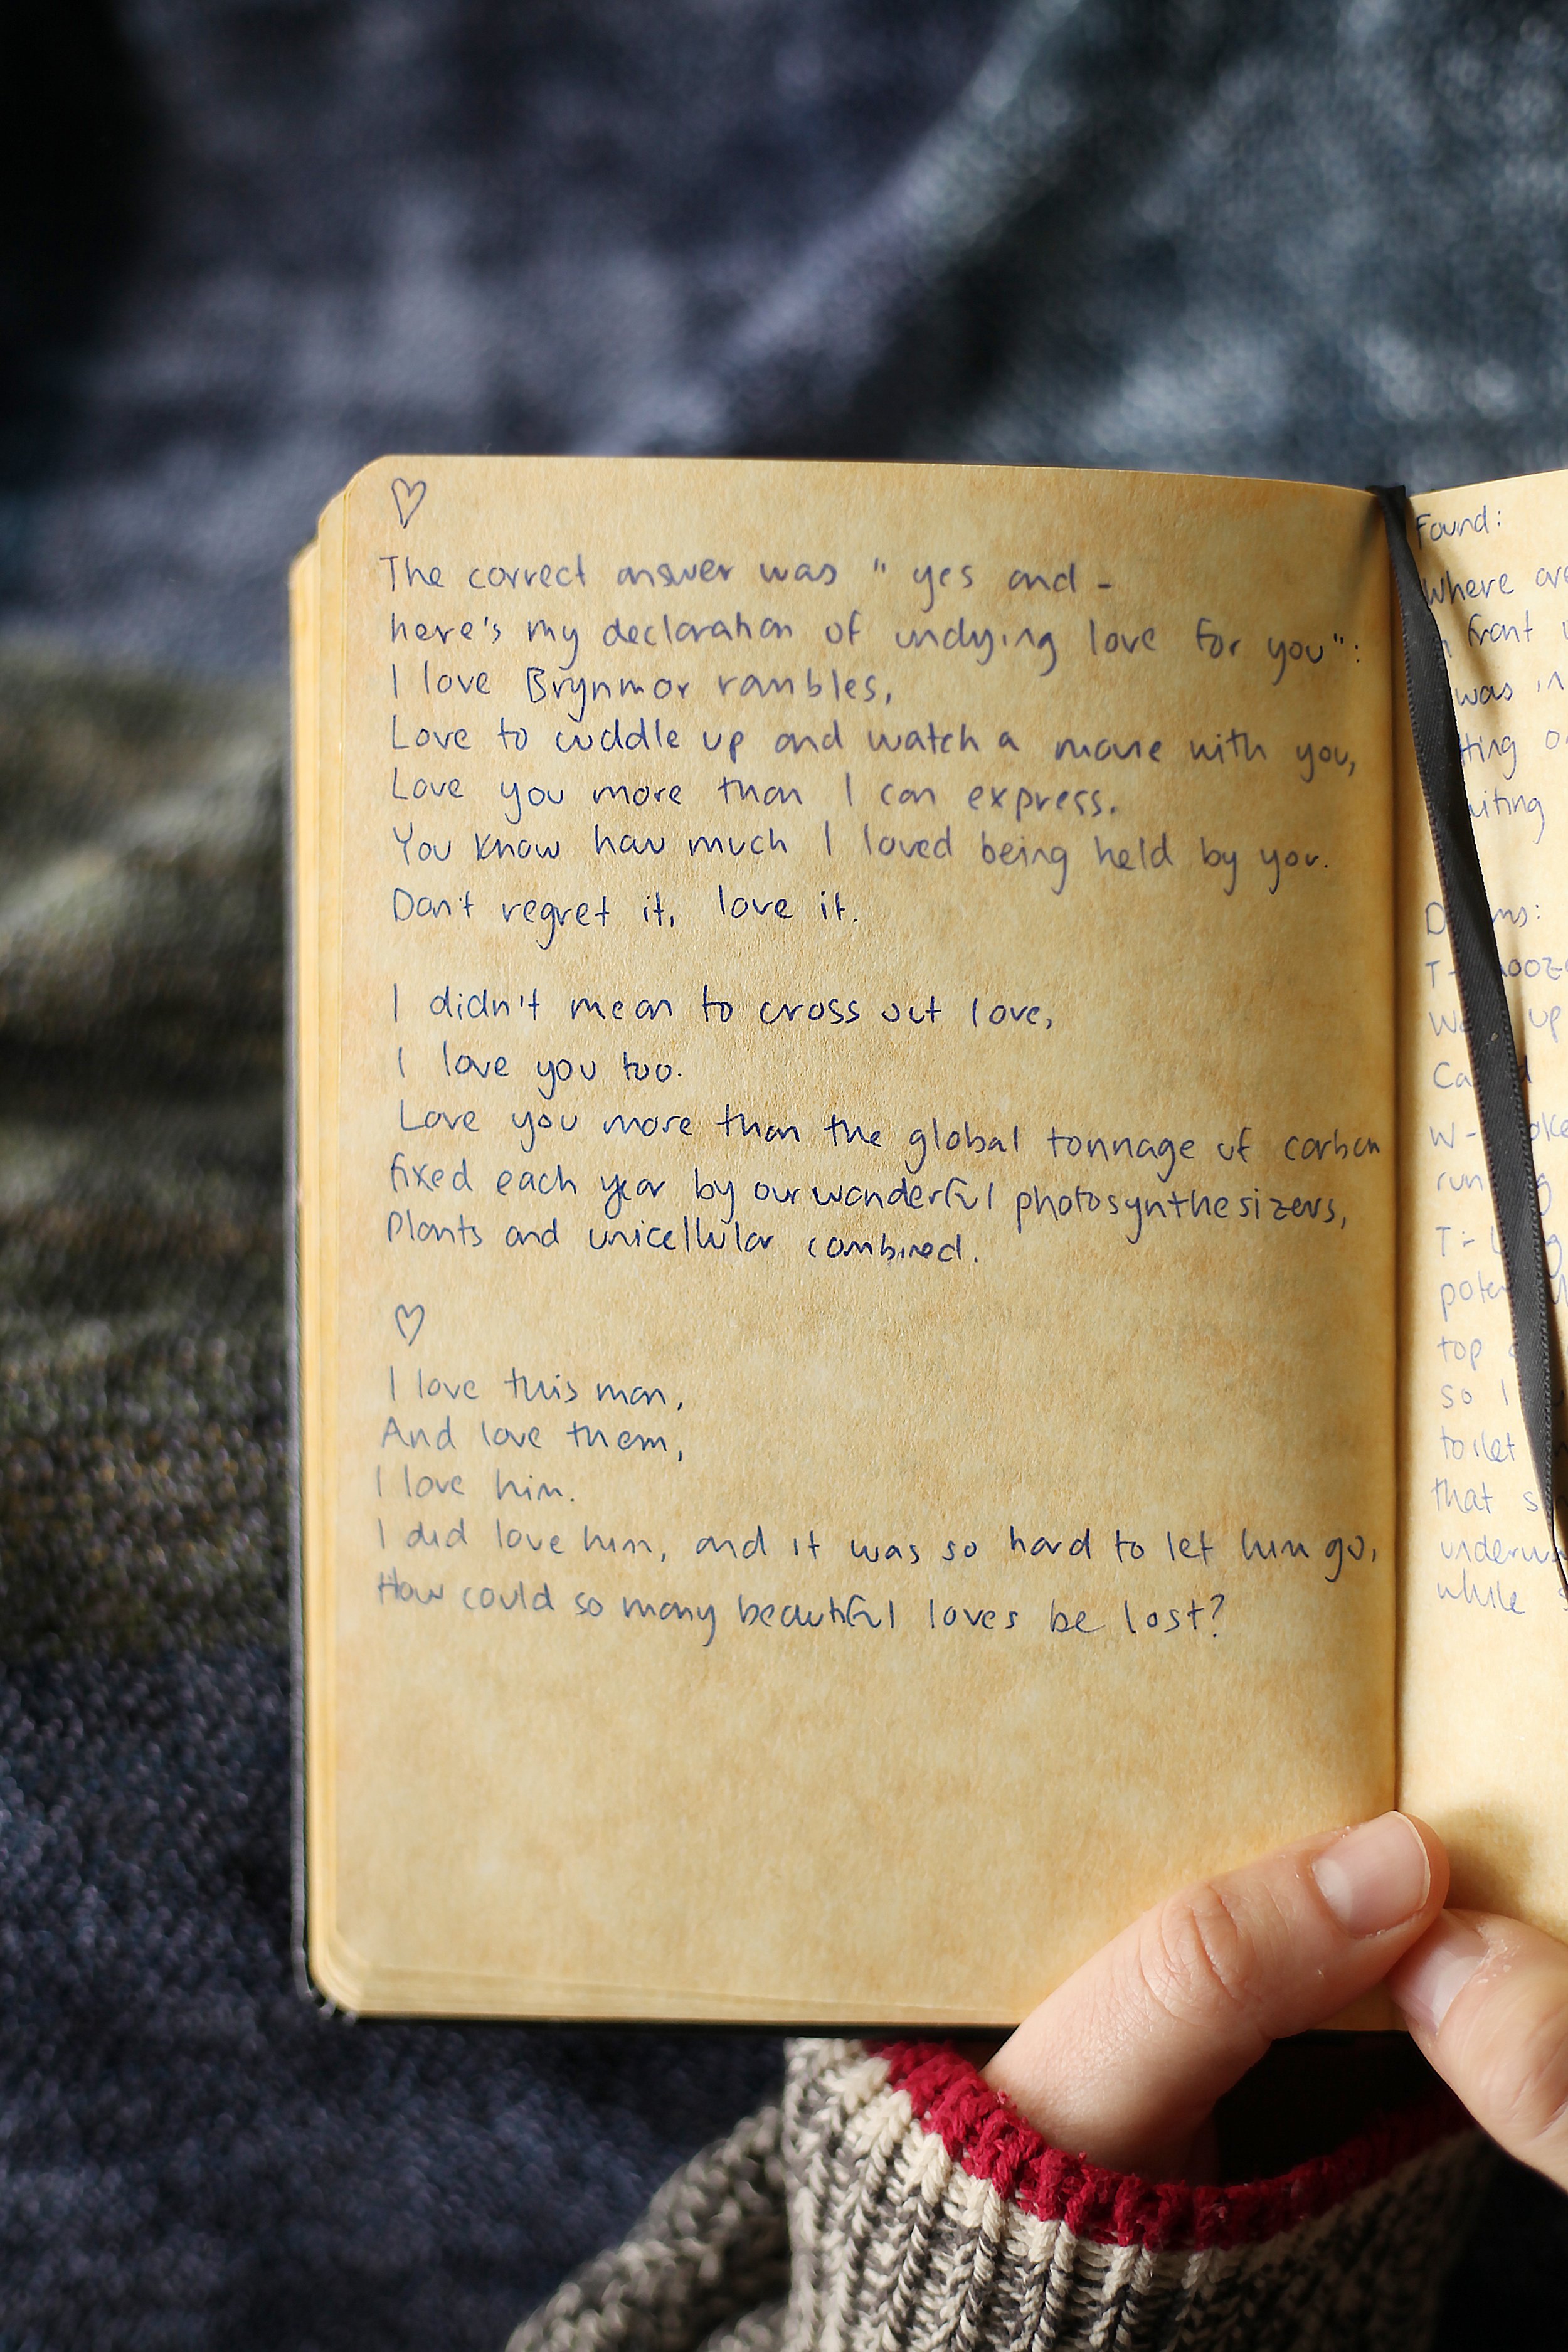 The correct answer was " yes and -
here's my declaration of undying love for you":
I love Brynmor rambles,
Love to cuddle up and watch a movie with you,
Love you more than I can express.
You know how much I loved being held by you.
Don't regret it, love it.
I didn't mean to cross out love,
I love you too.
Love you more than the global tonnage of carbon
fixed each year by our wonderful photosynthesizers,
Plants and unicellular combined.
I love this man,
And love them,
I love him.
I did love him, and it was so hard to let him go,
How could so many beautiful loves be lost?
Found:
Where
front
was in
up
W-
top
so I
toilet
that
while